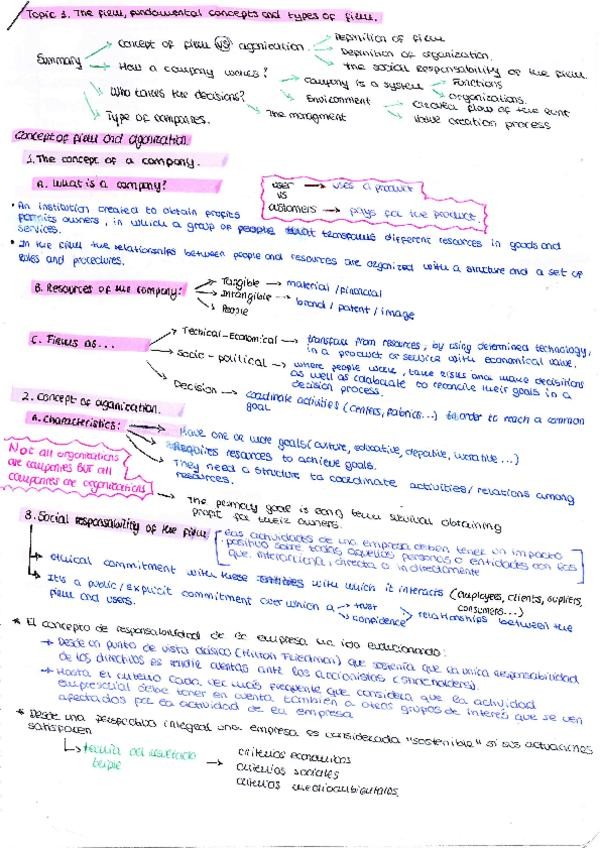 Topic 1. The firm, fundamental concepts and types of firm.
Summary
Concept of firm VS organisation.
Definition of firm
Definition of organization.
The social responsability of the firm.
How a company works?
Company is a system
Functions
organizations.
Environment
Circular flow of the rent
Value creation process
Who takes the decisions?
The managment
Type of companies.
Concept of firm and organization.
1. The concept of a company.
A. What is a company?
user → uses a product
VS
customers → pays for the product.
• An institution created to obtain profits
permits owners, in which a group of people transforms different resources in goods and
services.
• In the firm the relationships between people and resources are organized with a structure and a set of
rules and procedures.
B. Resources of the company:
Tangible → material / financial
Intangible → brand / patent / image
People
C. Firms as...
Techical-Economical → transform from resources, by using determined technology,
in a product or service with economical value.
Socio-political → where people work, take risks and make decisitions
as well as colaborate to reconcile their goals in a
decision process.
Decision → coordinate activities (centers, fabrics...) in order to reach a common
goal
2. Concept of organization.
A. Characteristics:
Have one or more goals (culture, educative, deportive, lucrative...)
Requires resources to achieve goals.
They need a structure to coordinate activities/relations among
resources.
Not all organizations
are companies BUT all
companies are organizations
→ The primary goal is long term survival obtaining
profit for their owners.
B. Social responsability of the firm
Las actividades de una empresa deben tener un impacto
positivo sobre todas aquellas personas o entidades con las
que interacciona, directa o indirectamente
→ ethical commitment with these entities with which it interacts (employees, clients, supliers,
consumers...)
→ It's a public/explicit commitment over which a
trust
confidence
relationships between the
firm and users.
* El concepto de responsabilidad de la empresa ha ido evolucionando:
→ Desde un punto de vista clásico (Milton Friedman) que sostenía que la única responsabilidad
de los directivos es rendir cuentas ante los accionistas (shareholders).
→ Hasta el criterio cada vez más frecuente que considera que la actividad
empresarial debe tener en cuenta también a otros grupos de interés que se ven
afectados por la actividad de la empresa
* Desde una perspectiva integral una empresa es considerada "sostenible" si sus actuaciones
satisfacen
→ teoría del resultado
triple
→ criterios economicos
criterios sociales
criterios medioambientales.